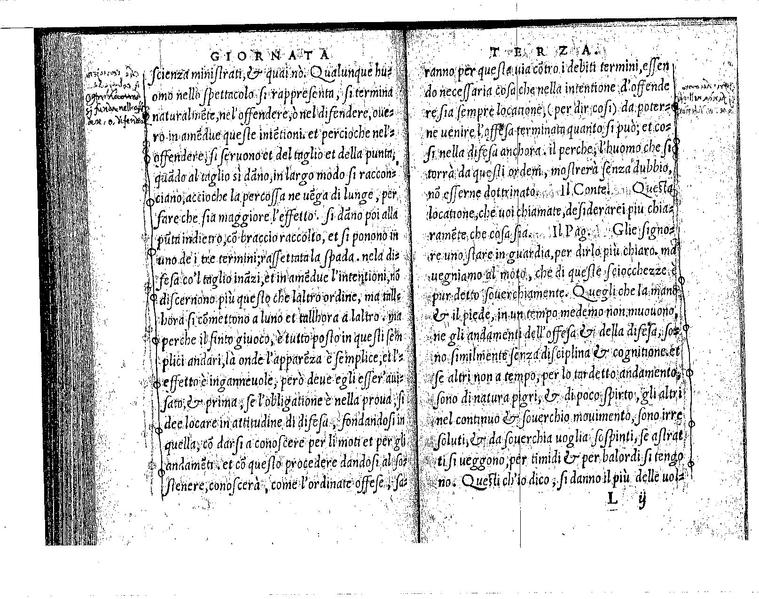 GIORNATA
scienza ministrati, & quai nò. Qualunque hu-
omo nello spettacolo si rappresenta, si termina
naturalmẽte, nel'offendere, ò nel difendere, oue-
ro in amẽdue queste intẽtioni. et percioche nel'-
offendere, si seruono et del taglio et della punta,
quãdo al taglio si dãno, in largo modo si raccon-
ciano, accioche la percossa ne uẽga di lunge, per
fare che sia maggiore l'effetto. si dãno poi alla
pũta indietro, cõ braccio raccolto, et si ponono in
uno de i tre termini; rassettata la spada. nela di-
fesa co'l taglio inãzi, et in amẽdue l'intentioni, nõ
discernono più questo che laltro ordine, ma tall-
hora si cõmettono a luno et tallhora à laltro. ma
perche il finto giuoco, è tutto posto in questi sem
plici andari, là onde l'apparẽza è semplice, et l'-
effetto è ingannevole, però deue egli esser' aui-
sato, & prima, se l'obligatione è nella proua, si
dee locare in attitudine di difesa, fondandosi in
quella, cõ darsi a conoscere per li moti et per gli
andamẽti. et cõ questo procedere dandosi al so-
stenere, conoscerà, come l'ordinate offese, sa-
TERZA.
ranno per questa uia cõtro i debiti termini, essen
do necessaria cosa che nella intentione d'offende
re, sia sempre locatione, (per dir cosi) da poter-
ne uenire l'offesa terminata quanto si può; et co-
si nella difesa anchora. il perche, l'huomo che si
torrà da questi ordeni, mostrerà senza dubbio,
nõ esserne dottrinato. Il Conte. Questa
locatione, che uoi chiamate, desiderarei piu chia-
ramẽte che cosa sia. Il Pag. Glie signo-
re uno stare in guardia, per dirlo più chiaro. ma
uegniamo al moto, che di queste sciocchezze è
pur detto souerchiamente. Quegli che la mano
& il piede, in un tempo medemo non muouono,
ne gli andamenti dell'offesa & della difesa, so-
no similmente senza disciplina & cognitione. et
se altri non a tempo, per lo tardetto andamento,
sono di natura pigri, & di poco spirto, gli altri
nel continuo & souerchio mouimento, sono irre
soluti, & da souerchia uoglia sospinti, se astrat
ti si ueggono, per timidi & per balordi si tengo
no. Questi ch'io dico, si danno il più delle uol-
L ij